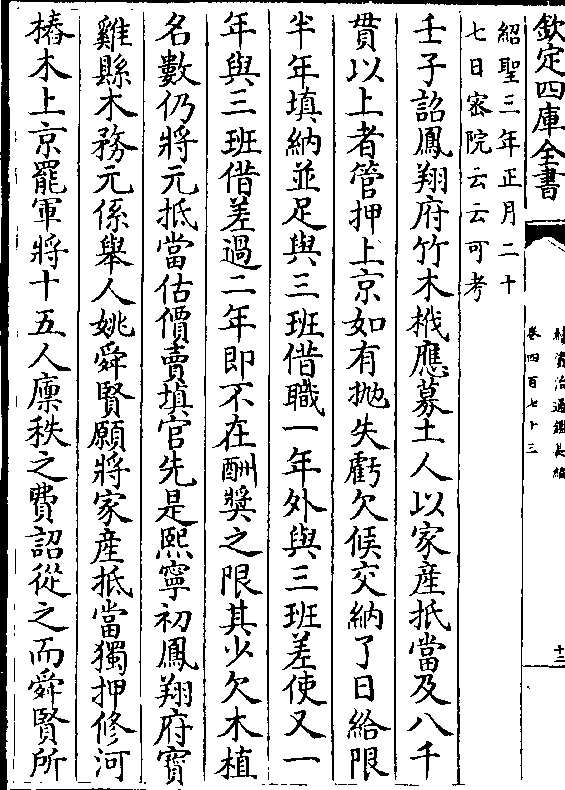 欽定四庫全書
續資治通鑑長編
卷四百七十三
十三
紹聖三年正月二十
七日密院云云可考
壬子詔鳳翔府竹木栰應募土人以家產抵當及八千
貫以上者管押上京如有拋失虧欠候交納了日給限
半年填納並足與三班借職一年外與三班差使又一
年與三班借差過二年即不在酬奬之限其少欠木植
名數仍將元抵當估價賣填官先是熙寧初鳳翔府寳
雞縣木務元係舉人姚舜賢願將家產抵當獨押修河
樁木上京罷軍將十五人廪秩之費詔從之而舜賢所